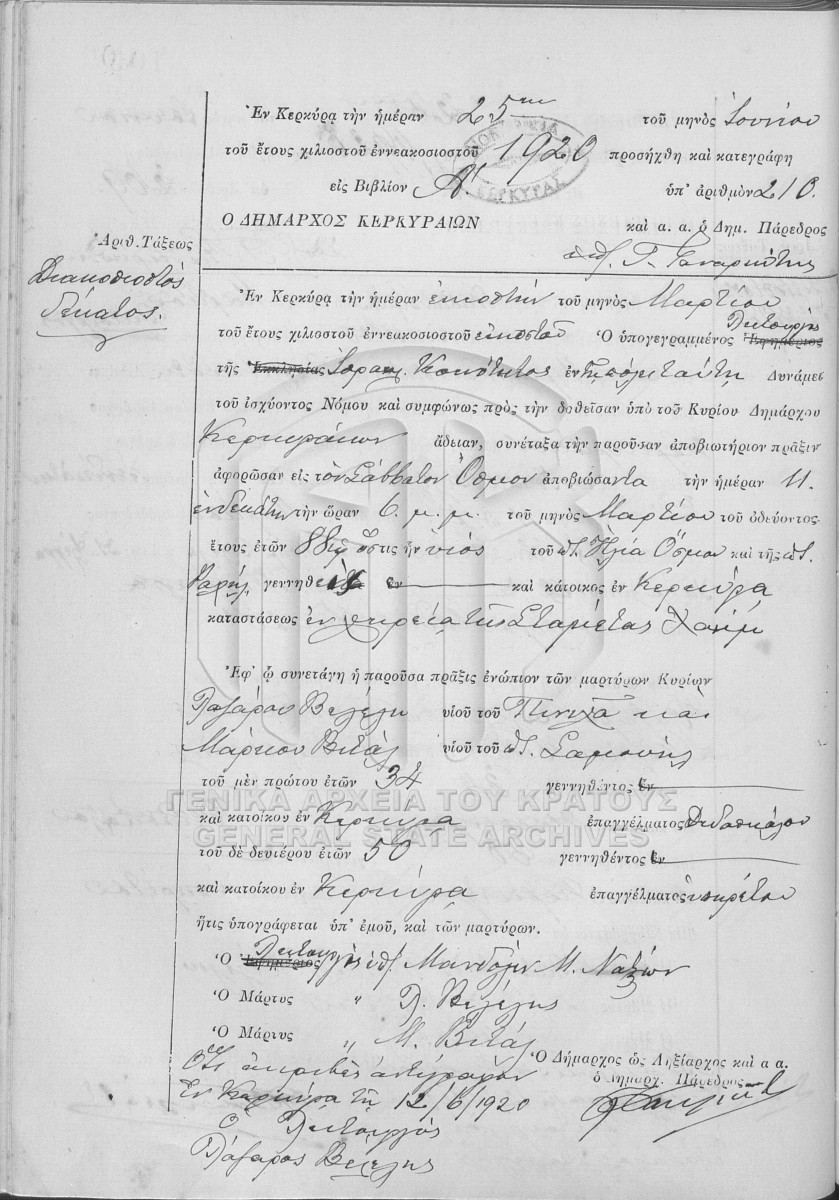 Ἐν Κερκύρᾳ τὴν ἡμέραν 25ην τοῦ μηνὸς Ἰουνίου
τοῦ ἔτους χιλιοστοῦ ἐννεακοσιοστοῦ 1920 προσήχθη καὶ κατεγράφη
εἰς Βιβλίον Α' ὑπ' ἀριθμὸν 210.
Ο ΔΗΜΑΡΧΟΣ ΚΕΡΚΥΡΑΙΩΝ καὶ α. α. ὁ Δημ. Πάρεδρος
Ἀριθ. Τάξεως
Διακοσιοστὸς
δέκατος.
Ἐν Κερκύρᾳ τὴν ἡμέραν εἰκοστὴν τοῦ μηνὸς Μαρτίου
τοῦ ἔτους χιλιοστοῦ ἐννεακοσιοστοῦ εἰκοστοῦ Ὁ ὑπογεγραμμένος Ἐφημέριος Λειτουργὸς
τῆς Ἐκκλησίας Ἰσραηλ. Κοινότητος ἐν τῇ πόλει ταύτῃ Δυνάμει
τοῦ ἰσχύοντος Νόμου καὶ συμφώνως πρὸς τὴν δοθεῖσαν ὑπὸ τοῦ Κυρίου Δημάρχου
Κερκυραίων ἄδειαν, συνέταξα τὴν παροῦσαν ἀποβιωτήριον πρᾶξιν
ἀφορῶσαν εἰς τὸν Σάββατον Ὄσμον ἀποβιώσαντα τὴν ἡμέραν 11.
ἑνδεκάτην τὴν ὥραν 6. μ. μ. τοῦ μηνὸς Μαρτίου τοῦ ὁδεύοντος
ἔτους ἐτῶν 88 ὅστις ἦν υἱὸς τοῦ π. Ἠλία Ὄσμου καὶ τῆς π.
Ραχὴλ γεννηθεὶς ἐν καὶ κάτοικος ἐν Κερκύρᾳ
καταστάσεως ἐν χηρείᾳ τῆς Σταμέτας Χαΐμ
Ἐφ' ᾧ συνετάγη ἡ παροῦσα πρᾶξις ἐνώπιον τῶν μαρτύρων Κυρίων
Λαζάρου Βελέλη υἱοῦ τοῦ Πινχᾶ καὶ
Μάρκου Βιτάλ υἱοῦ τοῦ π. Σαμουὴλ
τοῦ μὲν πρώτου ἐτῶν 34 γεννηθέντος ἐν
καὶ κατοίκου ἐν Κερκύρᾳ ἐπαγγέλματος Διδασκάλου
ΓΕΝΙΚΑ ΑΡΧΕΙΑ ΤΟΥ ΚΡΑΤΟΥΣ
GENERAL STATE ARCHIVES
τοῦ δὲ δευτέρου ἐτῶν 50 γεννηθέντος ἐν
καὶ κατοίκου ἐν Κερκύρᾳ ἐπαγγέλματος ὑπηρέτου
ἥτις ὑπογράφεται ὑπ' ἐμοῦ, καὶ τῶν μαρτύρων.
Ὁ Ἐφημέριος Λειτουργὸς
Ὁ Μάρτυς " Λ. Βελέλης
Ὁ Μάρτυς " Μ. Βιτάλ
Ὅτι ἀκριβὲς ἀντίγραφον
Ἐν Κερκύρᾳ τῇ 12/6/1920
Ὁ Λειτουργὸς
Λάζαρος Βελέλης
Ὁ Δήμαρχος ὡς Ληξίαρχος καὶ α α.
ὁ Δημαρχ. Πάρεδρος